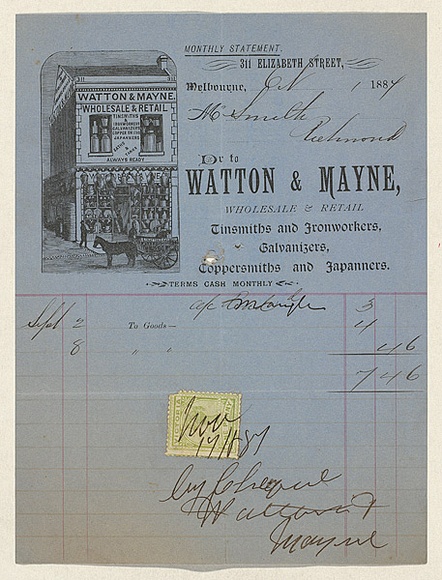 MONTHLY STATEMENT.
311 ELIZABETH STREET,
Melbourne, Oct 1 1884
Mr Smith
Richmond
Dr to
WATTON & MAYNE,
WHOLESALE & RETAIL
Tinsmiths and Ironworkers,
Galvanizers,
Coppersmiths and Japanners.
TERMS CASH MONTHLY
311 311
WATTON & MAYNE.
WHOLESALE & RETAIL
TINSMITHS
& IRONWORKERS
GALVANIZERS
COPPERSMITHS
JAPANNERS
ALWAYS READY
3
Sept 2 To Goods— 4
8 " " 4 6
7 4 6
VICTORIA
Nov
by Cheque
Watton &
Mayne